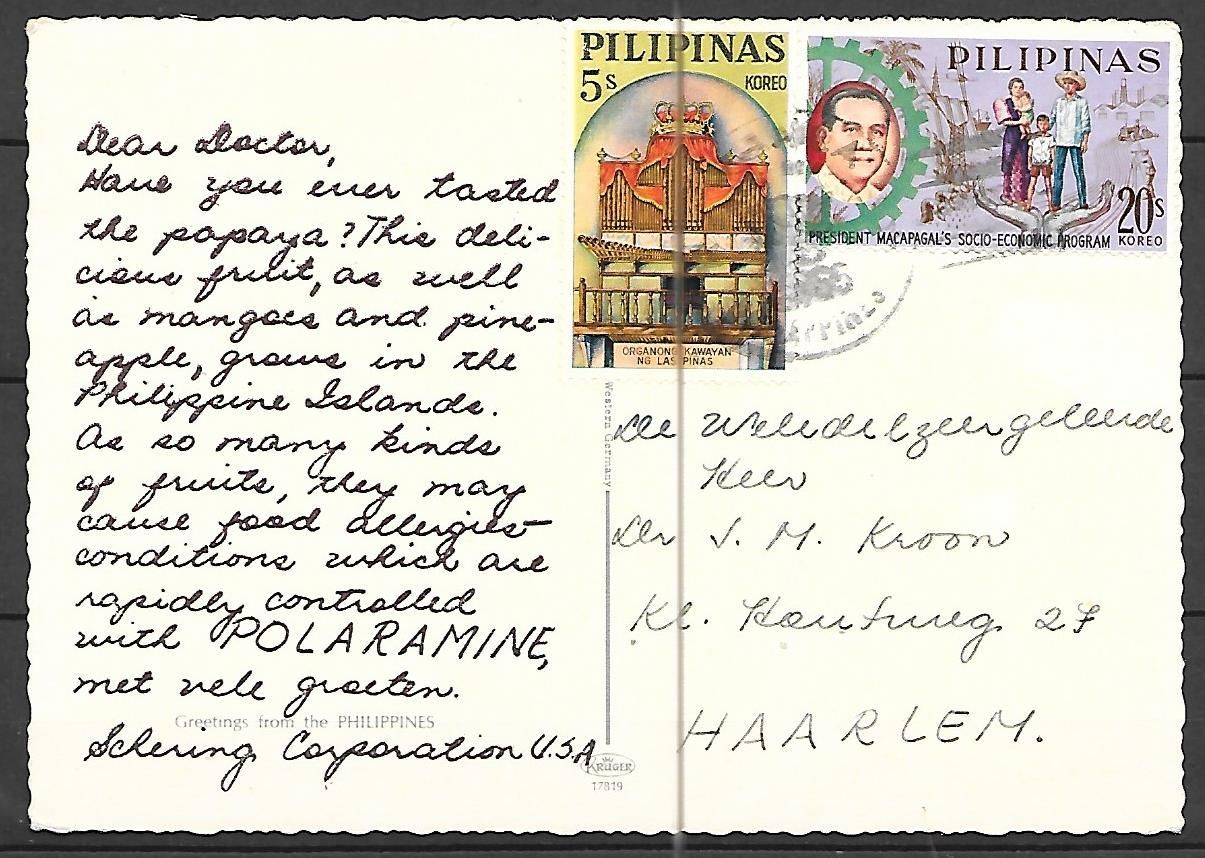 Dear Doctor,
Have you ever tasted
the papaya? This deli-
cious fruit, as well
as mangoes and pine-
apple, grows in the
Philippine Islands.
As so many kinds
of fruits, they may
cause food allergies-
conditions which are
rapidly controlled
with POLARAMINE,
met vele groeten.
Greetings from the PHILIPPINES
Schering Corporation U.S.A
Western Germany
KRÜGER
17819
PILIPINAS
5s
KOREO
ORGANONG KAWAYAN
NG LAS PIÑAS
PILIPINAS
20s
PRESIDENT MACAPAGAL'S SOCIO-ECONOMIC PROGRAM KOREO
De Weledelzeergeleerde
Heer
Dr J. M. Kroon
Kl. Houtweg 27
HAARLEM.